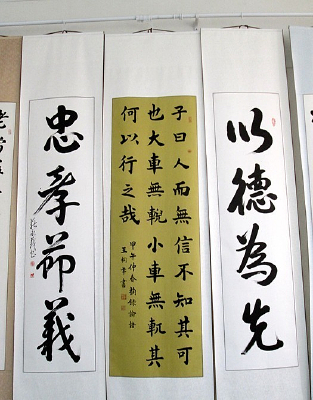 以德為先
子曰人而無信不知其可
也大車無輗小車無軏其
何以行之哉
甲午仲春節錄論語
忠孝節義